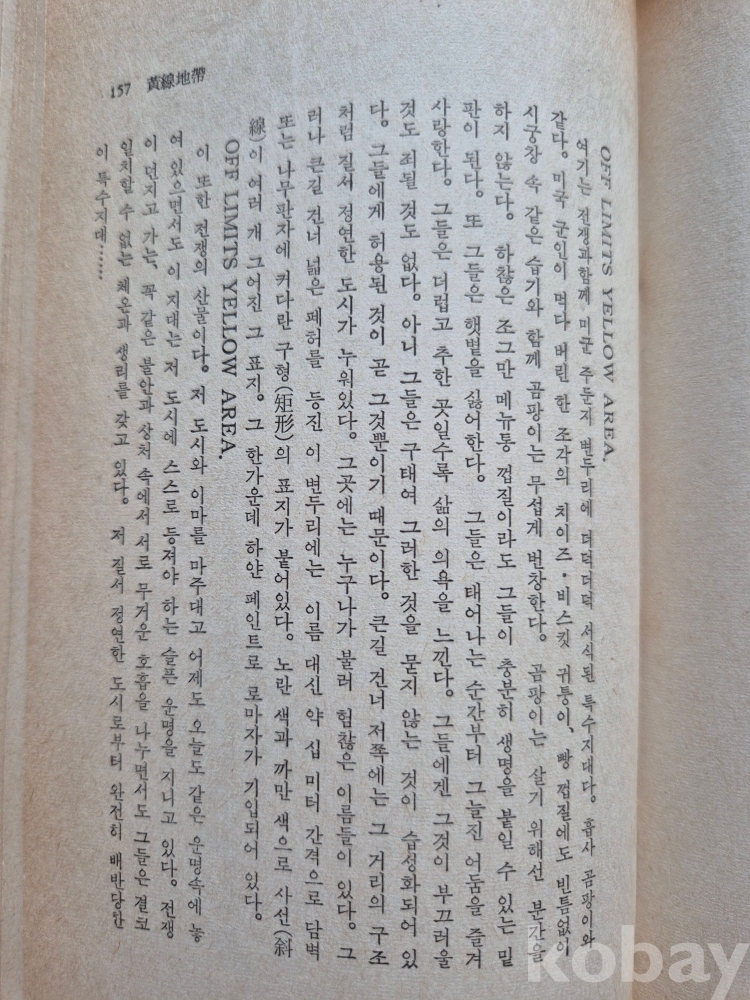 OFF LIMITS YELLOW AREA.
여기는 전쟁과 함께 미군 주둔지 변두리에 더덕더덕 서식된 특수지대다. 흡사 곰팡이와
같다. 미국 군인이 먹다 버린 한 조각의 치이즈·비스킷 귀퉁이, 빵 껍질에도 빈틈없이
시궁창 속 같은 습기와 함께 곰팡이는 무섭게 번창한다. 곰팡이는 살기 위해선 분간을
하지 않는다. 하찮은 조그만 메뉴통 껍질이라도 그들이 충분히 생명을 붙일 수 있는 밑
판이 된다. 또 그들은 햇볕을 싫어한다. 그들은 태어나는 순간부터 그늘진 어둠을 즐겨
사랑한다. 그들은 더럽고 추한 곳일수록 삶의 의욕을 느낀다. 그들에겐 그것이 부끄러울
것도 죄될 것도 없다. 아니 그들은 구태여 그러한 것을 묻지 않는 것이 습성화되어 있
다. 그들에게 허용된 것이 곧 그것뿐이기 때문이다. 큰길 건너 저쪽에는 그 거리의 구조
처럼 질서 정연한 도시가 누워있다. 그곳에는 누구나가 불러 험찮은 이름들이 있다. 그
러나 큰길 건너 넓은 폐허를 등진 이 변두리에는 이름 대신 약 십 미터 간격으로 담벽
또는 나무판자에 커다란 구형(矩形)의 표지가 붙어있다. 노란 색과 까만 색으로 사선(斜
線)이 여러 개 그어진 그 표지. 그 한가운데 하얀 페인트로 로마자가 기입되어 있다.
OFF LIMITS YELLOW AREA.
이 또한 전쟁의 산물이다. 저 도시와 이마를 마주대고 어제도 오늘도 같은 운명속에 놓
여 있으면서도 이 지대는 저 도시에 스스로 등져야 하는 슬픈 운명을 지니고 있다. 전쟁
이 던지고 가는, 꼭 같은 불안과 상처 속에서 서로 무거운 호흡을 나누면서도 그들은 결코
일치할 수 없는 체온과 생리를 갖고 있다. 저 질서 정연한 도시로부터 완전히 배반당한
이 특수지대……
157 黃線地帶
kobay